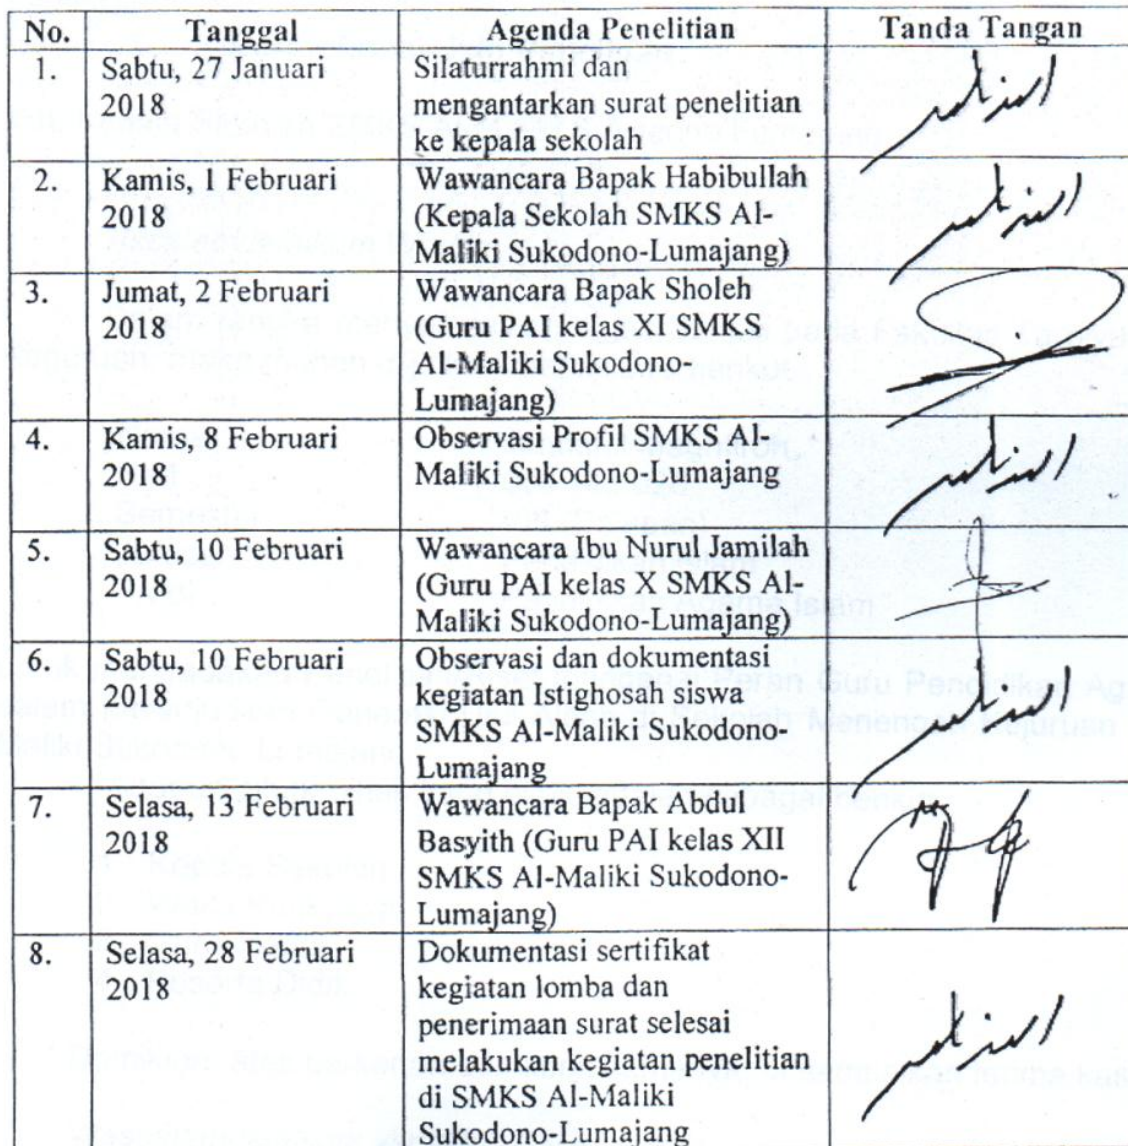 No. Tanggal Agenda Penelitian Tanda Tangan
1. Sabtu, 27 Januari Silaturrahmi dan
2018 mengantarkan surat penelitian
ke kepala sekolah
2. Kamis, 1 Februari Wawancara Bapak Habibullah
2018 (Kepala Sekolah SMKS Al-
Maliki Sukodono-Lumajang)
3. Jumat, 2 Februari Wawancara Bapak Sholeh
2018 (Guru PAI kelas XI SMKS
Al-Maliki Sukodono-
Lumajang)
4. Kamis, 8 Februari Observasi Profil SMKS Al-
2018 Maliki Sukodono-Lumajang
5. Sabtu, 10 Februari Wawancara Ibu Nurul Jamilah
2018 (Guru PAI kelas X SMKS Al-
Maliki Sukodono-Lumajang)
6. Sabtu, 10 Februari Observasi dan dokumentasi
2018 kegiatan Istighosah siswa
SMKS Al-Maliki Sukodono-
Lumajang
7. Selasa, 13 Februari Wawancara Bapak Abdul
2018 Basyith (Guru PAI kelas XII
SMKS Al-Maliki Sukodono-
Lumajang)
8. Selasa, 28 Februari Dokumentasi sertifikat
2018 kegiatan lomba dan
penerimaan surat selesai
melakukan kegiatan penelitian
di SMKS Al-Maliki
Sukodono-Lumajang